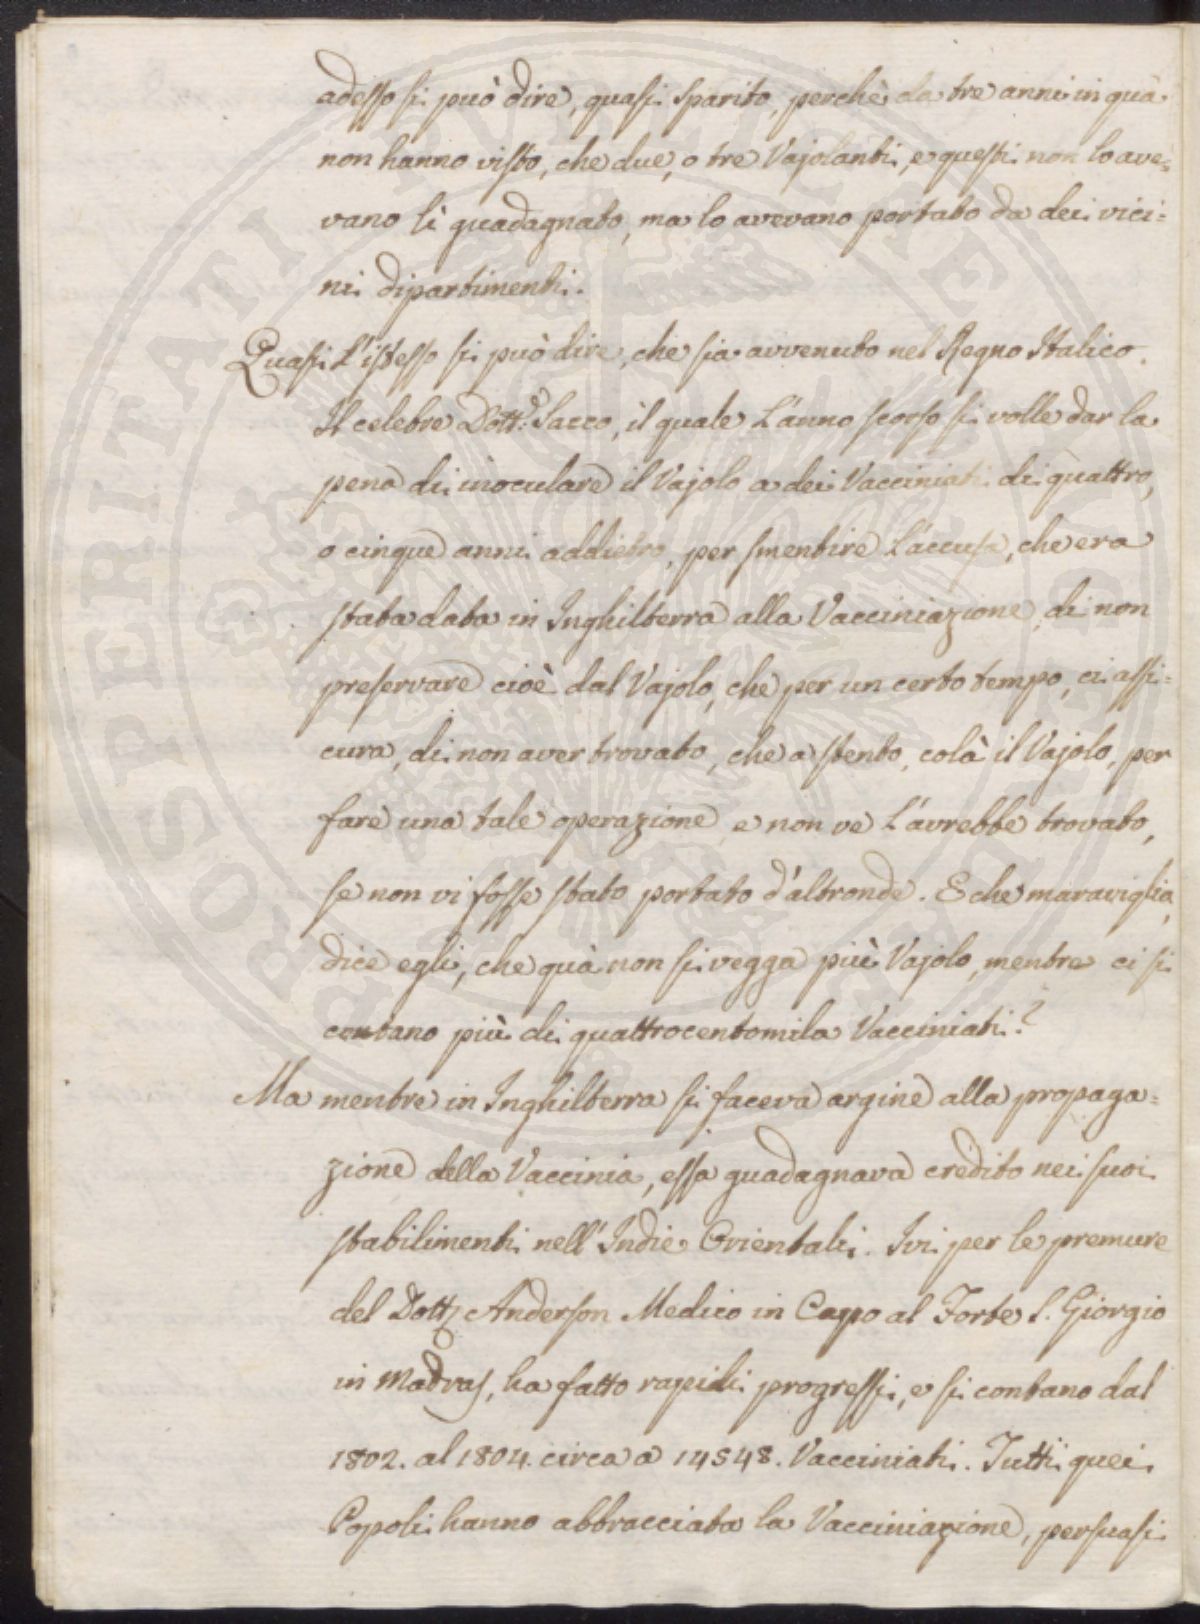 adesso si può dire, quasi sparito, perchè da tre anni in quà
non hanno visto, che due, o tre Vajolanti, e questi non lo ave=
vano lì guadagnato, ma lo avevano portato da dei vici=
ni dipartimenti.
Quasi l'istesso si può dire, che sia avvenuto nel Regno Italico.
Il celebre Dott.r Sacco, il quale l'anno scorso si volle dar la
pena di inoculare il Vajolo a dei Vacciniati di quattro,
o cinque anni addietro, per smentire l'accusa, che era
stata data in Inghilterra alla Vacciniazione, di non
preservare cioè dal Vajolo, che per un certo tempo, ci assi=
cura, di non aver trovato, che a stento, colà il Vajolo, per
fare una tale operazione, e non ve l'avrebbe trovato,
se non vi fosse stato portato d'altronde. E che maraviglia,
dice egli, che quà non si vegga più Vajolo, mentre ci si
contano più di quattrocentomila Vacciniati?
Ma mentre in Inghilterra si faceva argine alla propaga=
zione della Vaccinia, essa guadagnava credito nei suoi
stabilimenti nell'Indie Orientali. Ivi per le premure
del Dott. Anderson Medico in Capo al Forte S. Giorgio
in Madras, ha fatto rapidi progressi, e si contano dal
1802. al 1804. circa a 14548. Vacciniati. Tutti quei
Popoli hanno abbracciata la Vacciniazione, persuasi
PROSPERITATI PVBLICAE AVGENDAE